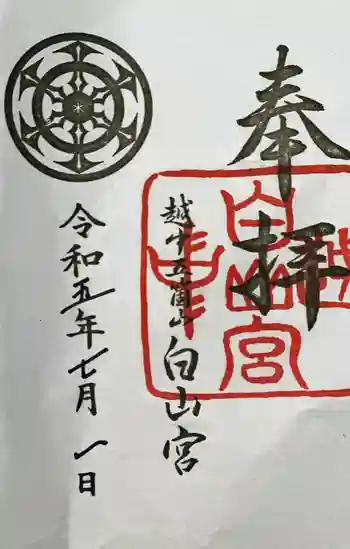 奉拝
越中五箇山
白山宮
令和五年七月一日
白山宮